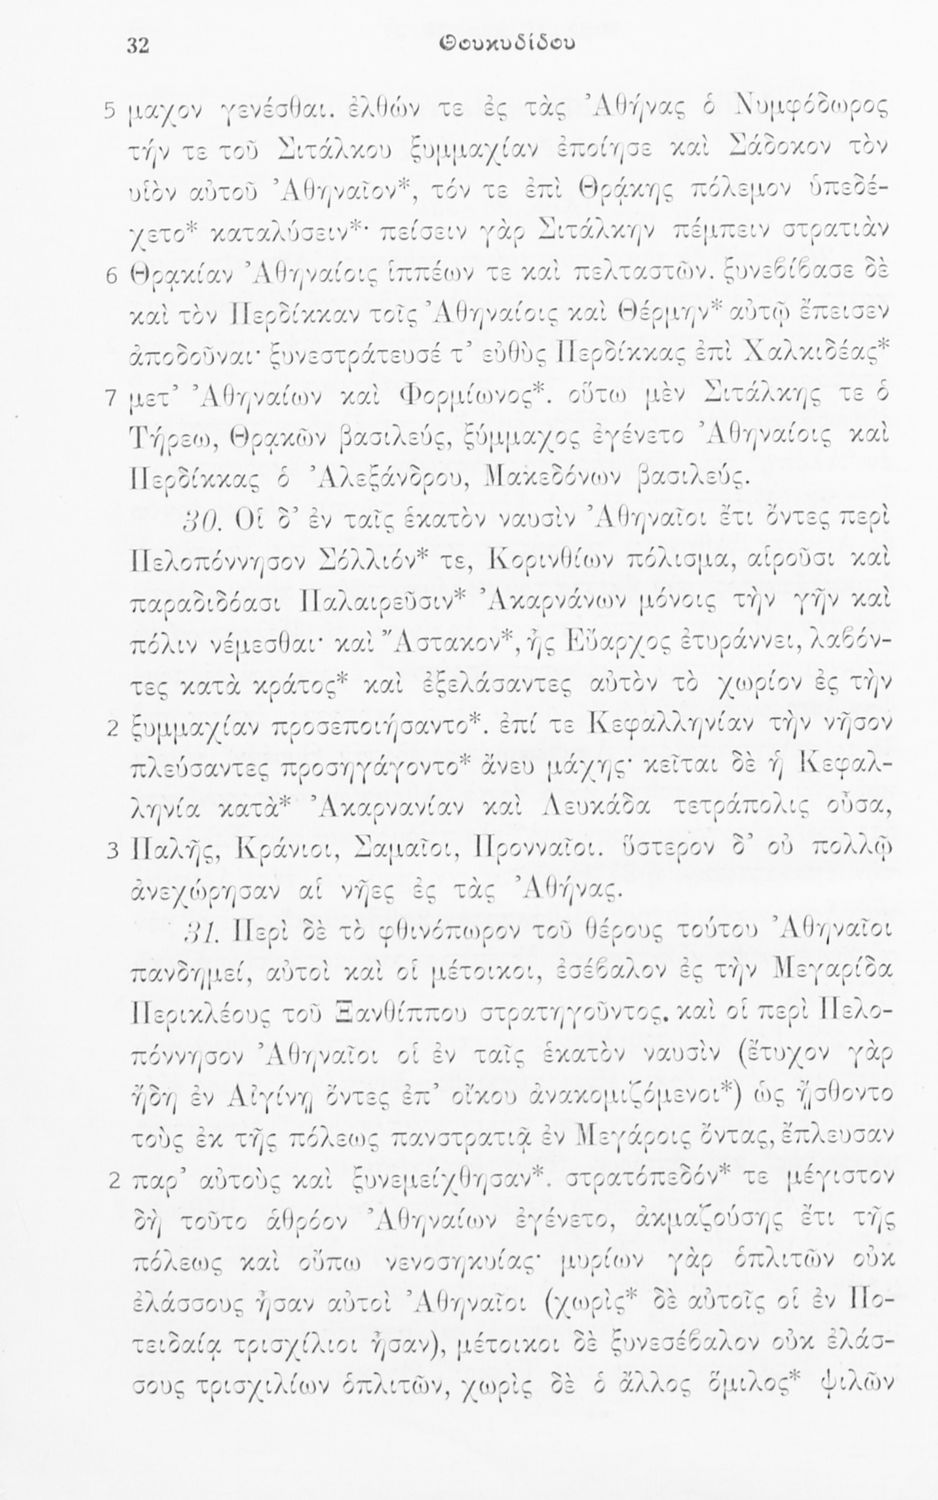 32 Θουκυδίδου
5 μαχον γενέσθαι. ἐλθών τε ἐς τὰς Ἀθήνας ὁ Νυμφόδωρος
τήν τε τοῦ Σιτάλκου ξυμμαχίαν ἐποίησε καὶ Σάδοκον τὸν
υἱὸν αὐτοῦ Ἀθηναῖον*, τόν τε ἐπὶ Θρᾴκης πόλεμον ὑπεδέ-
χετο* καταλύσειν*· πείσειν γὰρ Σιτάλκην πέμπειν στρατιὰν
6 Θρᾳκίαν Ἀθηναίοις ἱππέων τε καὶ πελταστῶν. ξυνεβίβασε δὲ
καὶ τὸν Περδίκκαν τοῖς Ἀθηναίοις καὶ Θέρμην* αὐτῷ ἔπεισεν
ἀποδοῦναι· ξυνεστράτευσέ τ’ εὐθὺς Περδίκκας ἐπὶ Χαλκιδέας*
7 μετ’ Ἀθηναίων καὶ Φορμίωνος*. οὕτω μὲν Σιτάλκης τε ὁ
Τήρεω, Θρᾳκῶν βασιλεύς, ξύμμαχος ἐγένετο Ἀθηναίοις καὶ
Περδίκκας ὁ Ἀλεξάνδρου, Μακεδόνων βασιλεύς.
30. Οἱ δ’ ἐν ταῖς ἑκατὸν ναυσὶν Ἀθηναῖοι ἔτι ὄντες περὶ
Πελοπόννησον Σόλλιόν* τε, Κορινθίων πόλισμα, αἱροῦσι καὶ
παραδιδόασι Παλαιρεῦσιν* Ἀκαρνάνων μόνοις τὴν γῆν καὶ
πόλιν νέμεσθαι· καὶ Ἄστακον*, ἧς Εὔαρχος ἐτυράννει, λαβόν-
τες κατὰ κράτος* καὶ ἐξελάσαντες αὐτὸν τὸ χωρίον ἐς τὴν
2 ξυμμαχίαν προσεποιήσαντο*. ἐπί τε Κεφαλληνίαν τὴν νῆσον
πλεύσαντες προσηγάγοντο* ἄνευ μάχης· κεῖται δὲ ἡ Κεφαλ-
ληνία κατὰ* Ἀκαρνανίαν καὶ Λευκάδα τετράπολις οὖσα,
3 Παλῆς, Κράνιοι, Σαμαῖοι, Προνναῖοι. ὕστερον δ’ οὐ πολλῷ
ἀνεχώρησαν αἱ νῆες ἐς τὰς Ἀθήνας.
31. Περὶ δὲ τὸ φθινόπωρον τοῦ θέρους τούτου Ἀθηναῖοι
πανδημεί, αὐτοὶ καὶ οἱ μέτοικοι, ἐσέβαλον ἐς τὴν Μεγαρίδα
Περικλέους τοῦ Ξανθίππου στρατηγοῦντος. καὶ οἱ περὶ Πελο-
πόννησον Ἀθηναῖοι οἱ ἐν ταῖς ἑκατὸν ναυσὶν (ἔτυχον γὰρ
ἤδη ἐν Αἰγίνῃ ὄντες ἐπ’ οἴκου ἀνακομιζόμενοι*) ὡς ᾔσθοντο
τοὺς ἐκ τῆς πόλεως πανστρατιᾷ ἐν Μεγάροις ὄντας, ἔπλευσαν
2 παρ’ αὐτοὺς καὶ ξυνεμείχθησαν*. στρατόπεδόν* τε μέγιστον
δὴ τοῦτο ἁθρόον Ἀθηναίων ἐγένετο, ἀκμαζούσης ἔτι τῆς
πόλεως καὶ οὔπω νενοσηκυίας· μυρίων γὰρ ὁπλιτῶν οὐκ
ἐλάσσους ἦσαν αὐτοὶ Ἀθηναῖοι (χωρὶς* δὲ αὐτοῖς οἱ ἐν Πο-
τειδαίᾳ τρισχίλιοι ἦσαν), μέτοικοι δὲ ξυνεσέβαλον οὐκ ἐλάσ-
σους τρισχιλίων ὁπλιτῶν, χωρὶς δὲ ὁ ἄλλος ὅμιλος* ψιλῶν